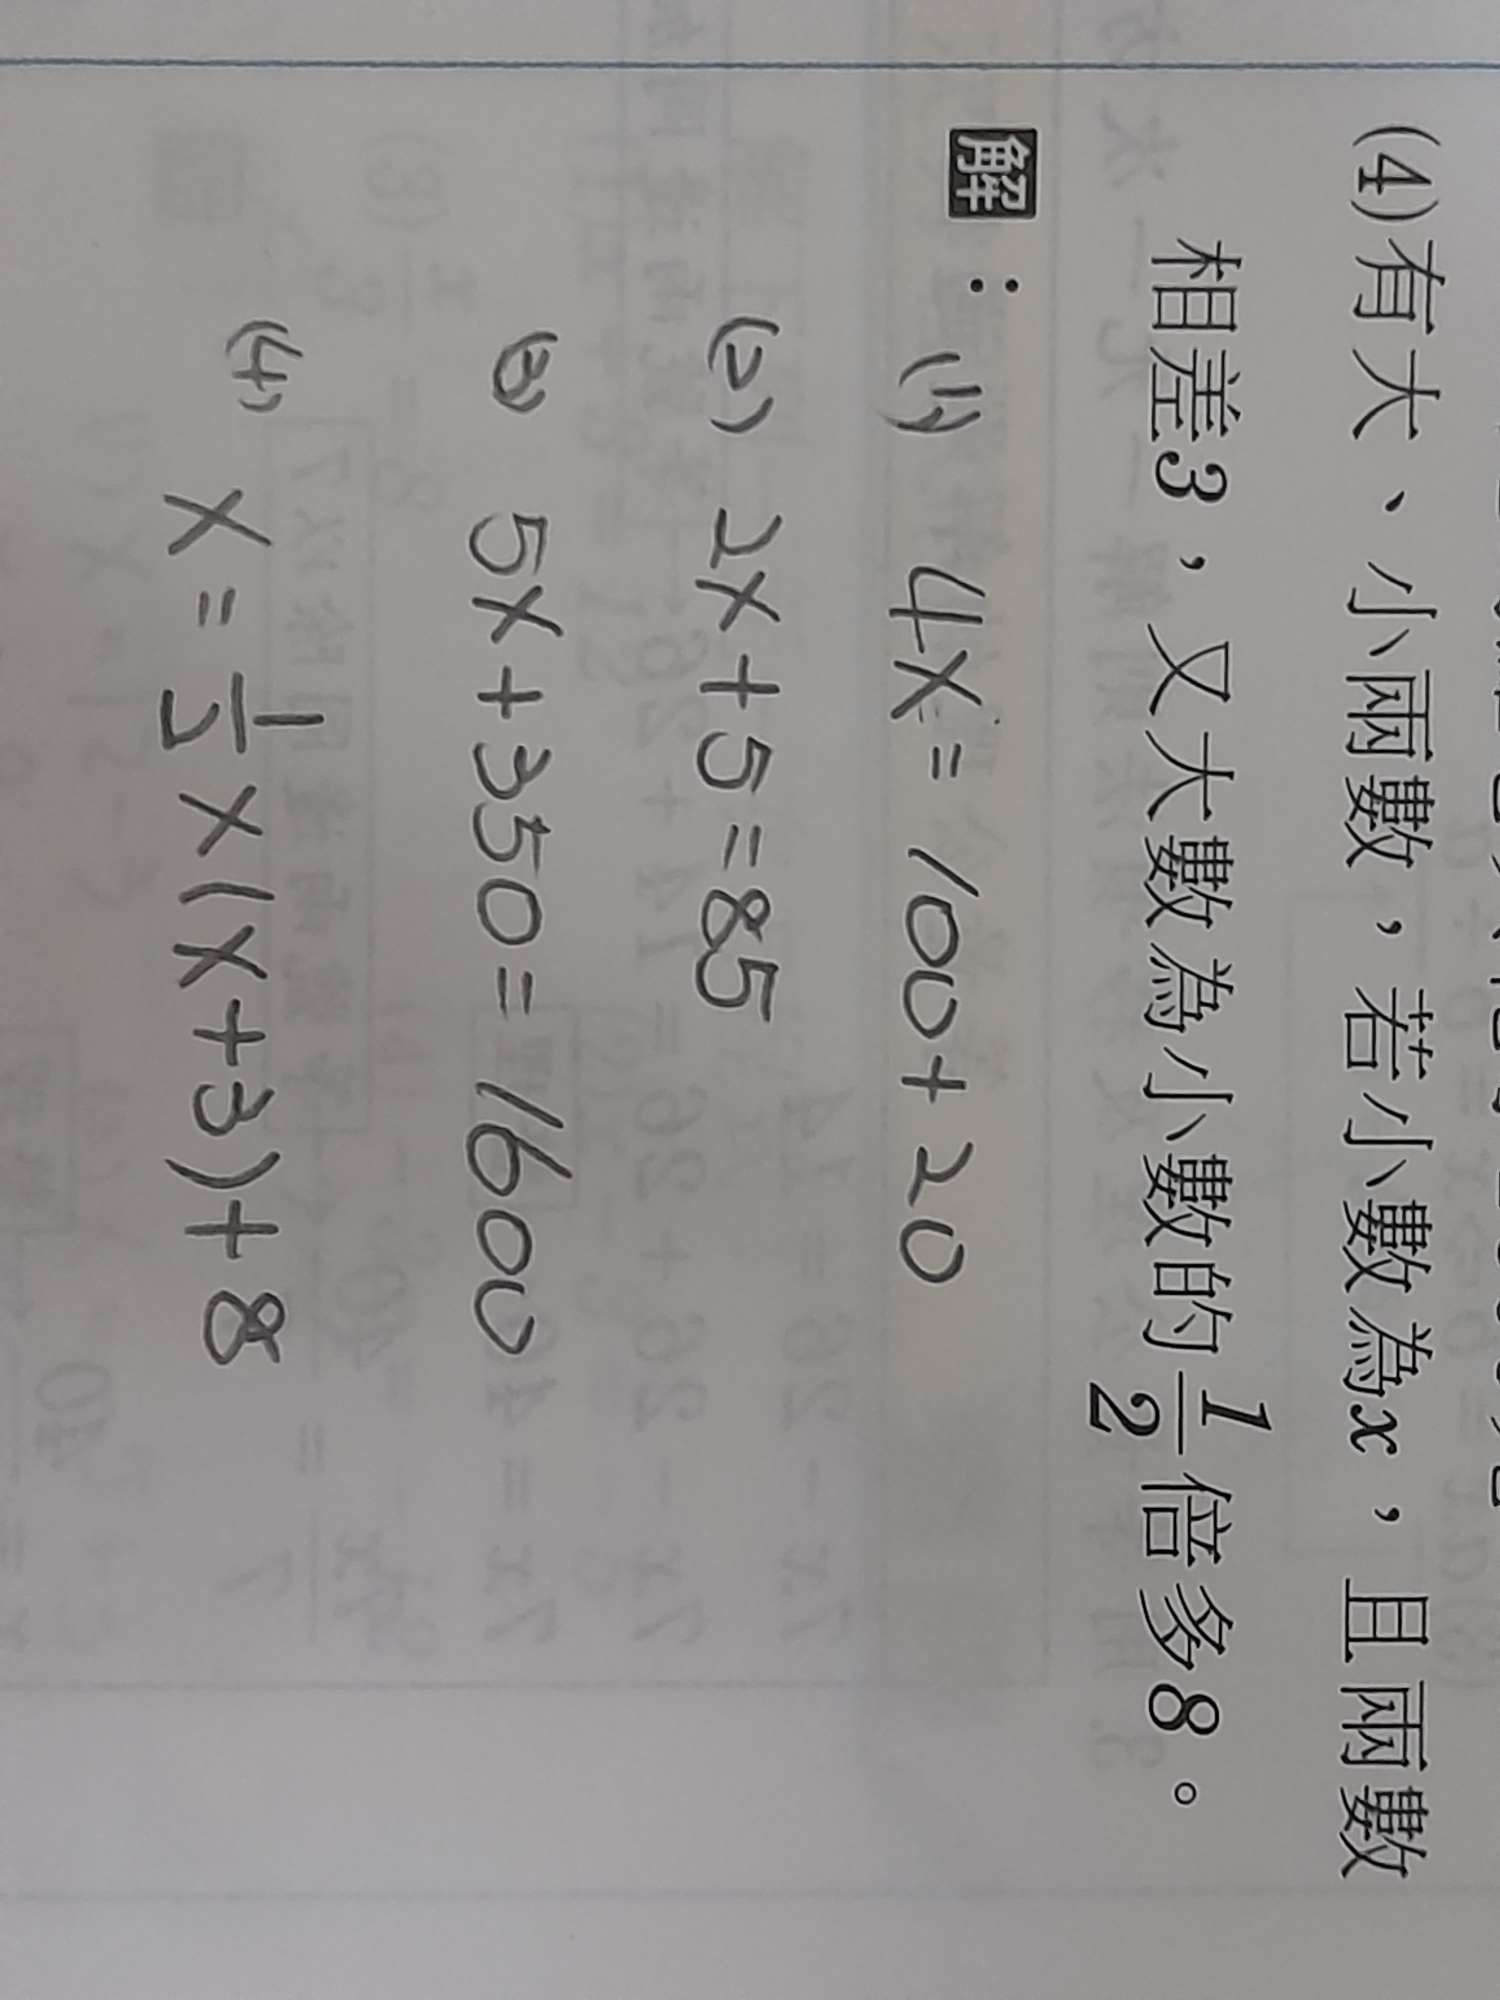 (4)有大、小兩數，若小數為x，且兩數
相差3，又大數為小數的1/2倍多8。
解：(1) 4x = 100 + 20
(2) 2x + 5 = 85
(3) 5x + 350 = 1600
(4) x = 1/2 x (x + 3) + 8